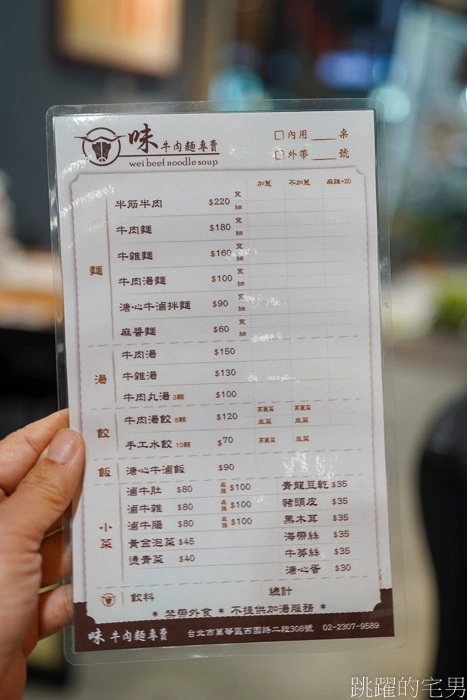 味 牛肉麵專賣
wei beef noodle soup
內用 ____ 桌
外帶 ____ 號
加蔥 不加蔥 麻辣+20
麵
半筋半肉 $220 寬 細
牛肉麵 $180 寬 細
牛雜麵 $160 寬 細
牛肉湯麵 $100 寬 細
溏心牛滷拌麵 $90 寬 細
麻醬麵 $60 寬 細
湯
牛肉湯 $150
牛雜湯 $130
牛肉丸湯 3顆 $100
餃
牛肉湯餃 8顆 $120 高麗菜 高麗菜 韭菜 韭菜
手工水餃 10顆 $70 高麗菜 高麗菜 韭菜 韭菜
飯
溏心牛滷飯 $90
小菜
滷牛肚 $80 麻辣 $100 青龍豆乾 $35
滷牛雜 $80 麻辣 $100 豬頭皮 $35
滷牛腸 $80 麻辣 $100 黑木耳 $35
黃金泡菜 $45 海帶絲 $35
燙青菜 $40 牛蒡絲 $35
溏心蛋 $30
飲料 總計
* 禁帶外食 * 不提供加湯服務 *
味 牛肉麵專賣 台北市萬華區西園路二段308號 02-2307-9589
跳躍的宅男